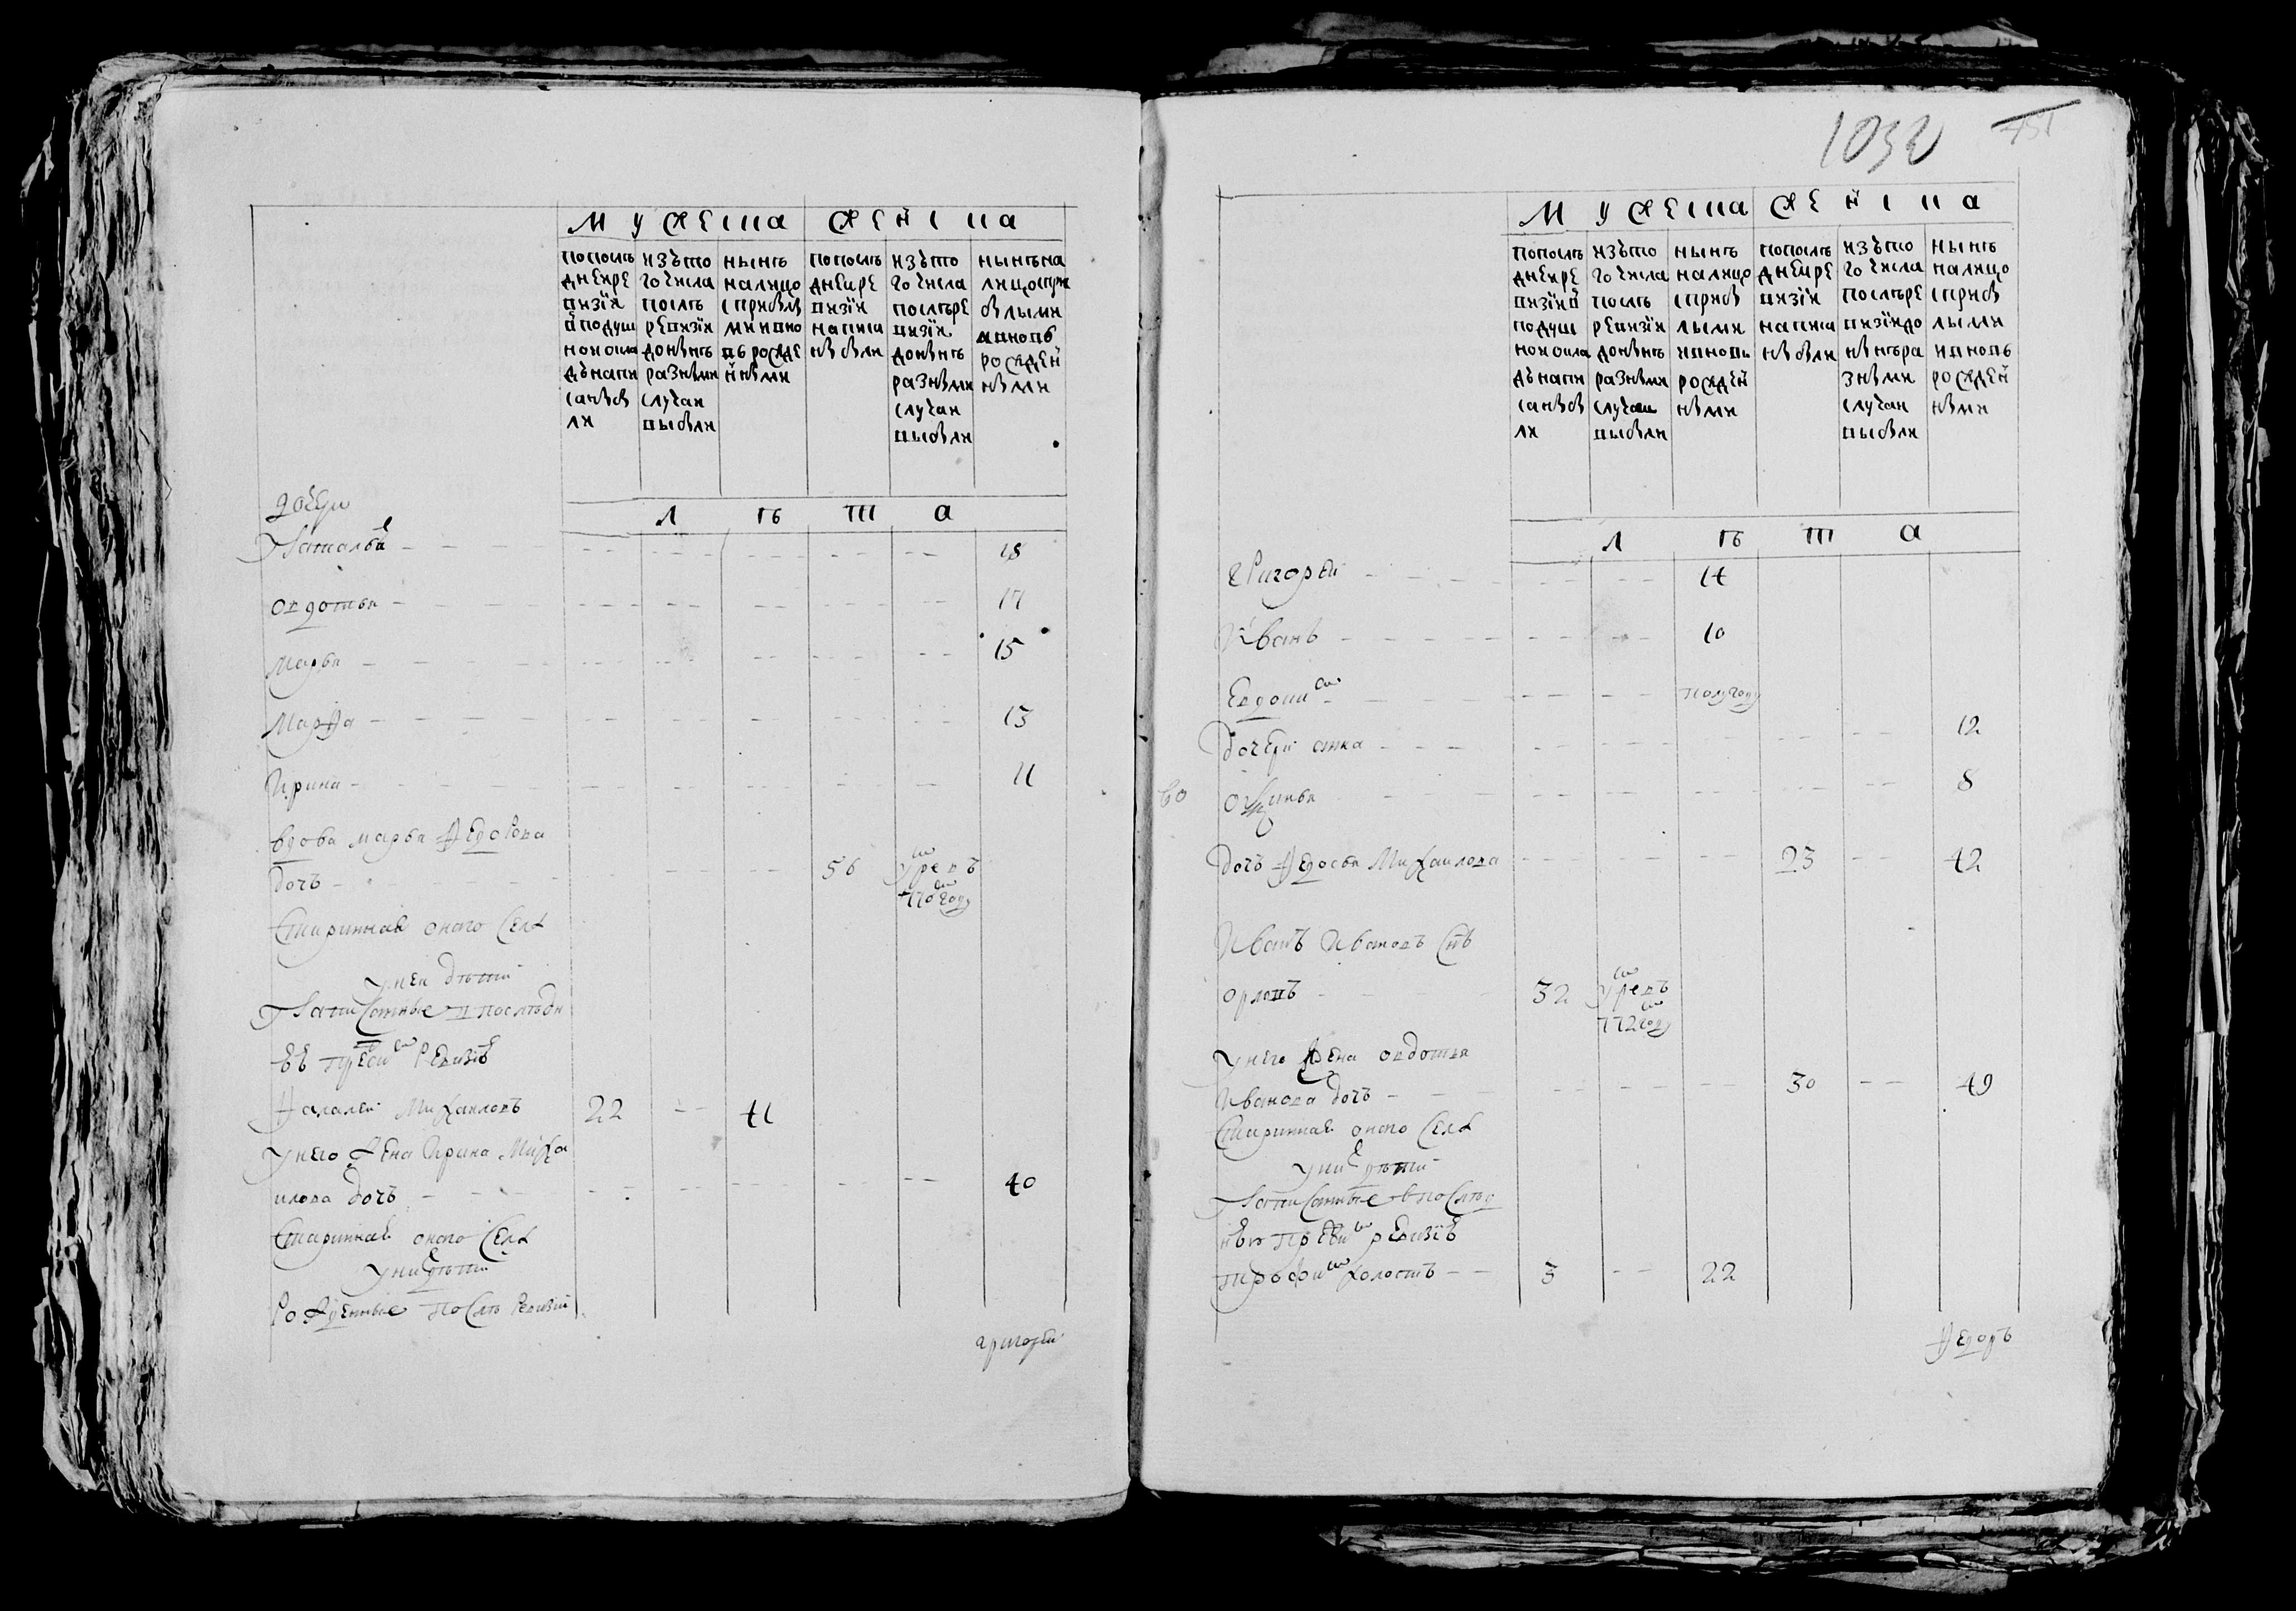 мужеска женска
по послѣ
дней ре
визіи
в подуш
ной окла
дъ напи
саны бы
ли
изъ то
го числа
послѣ
ревизіи
до нынѣ
разными
случаи
выбыли
нынѣ
на лицо
с прибылы
ми и вно
вь рожде
нными
по послѣ
дней ре
визіи
написа
ны были
изъ то
го числа
послѣ ре
визіи
до нынѣ
разными
случаи
выбыли
нынѣ на
лицо с при
былыми
и вновь
рожден
ными
л ѣ т а
дочери
Наталья 18
Овдотья 17
Марья 15
Марфа 13
Ирина 11
вдова Марья Федорова
дочь 56 умре въ
770м году
Старинная оного села
у ней дѣти
Написанные в послѣдн
ей пред сим ревизіе
Фалалей Михаиловъ 22 41
у него жена Ирина Миха
илова дочь 40
Старинная оного села
у них дѣти
Рожденные послѣ ревизіи
Григорей
1032
451
мужеска женска
по послѣ
дней ре
визіи в
подуш
ной окла
дъ напи
саны бы
ли
изъ то
го числа
послѣ
ревизіи
до нынѣ
разными
случаи
выбыли
нынѣ
на лицо
с прибы
лыми
и вновь
рожден
ными
по послѣ
дней ре
визіи
написа
ны были
изъ то
го числа
послѣ ре
визіи до
нынѣ ра
зными
случаи
выбыли
нынѣ
на лицо
с прибы
лыми
и вновь
рожден
ными
л ѣ т а
Григорей 14
Иванъ 10
Евдоким полугоду
дочери Анна 12
во Аксинья 8
дочь Федосья Михаилова 23 42
Иванъ Ивановъ снъ
Орловъ 32 умре въ
772м году
у него жена Овдотья
Иванова дочь 30 49
Старинная оного села
у них дѣти
Написанные в послѣд
ней пред сим ревизіе
Трофим холостъ 3 22
Федоръ